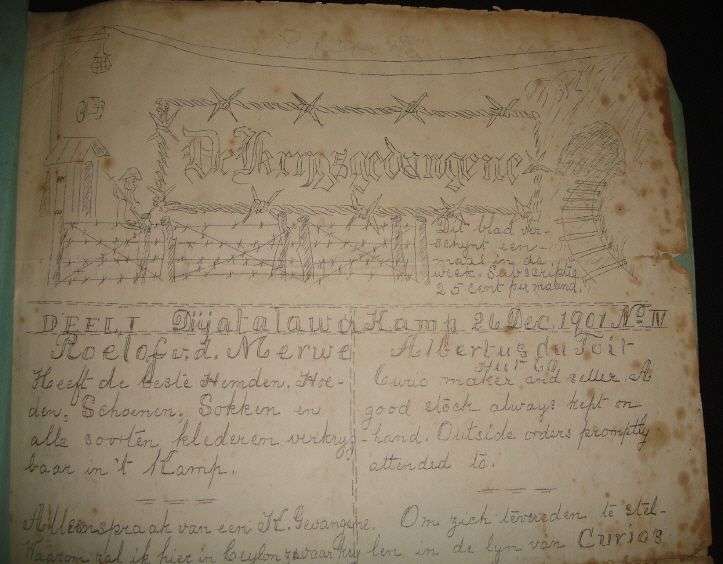 De Krijgsgevangene
Dit blad ver-
schynt een-
maal in de
week. Subscriptie
25 cent per maand.
DEEL I Dijatalawa Kamp 26 Dec. 1901 No IV
Roelof v.d. Merwe
Heeft de beste Hemden. Hoe-
den. Schoenen. Sokken en
alle soorten klederen verkryg-
baar in 't Kamp.
Albertus du Toit
Hut 60
Curio maker and seller A
good stock always kept on
hand. Outside orders promptly
attended to.
Alleenspraak van een K. Gevangene.
Waarom zal ik hier in Ceylon zo
Om zich tevreden te stel-
len in de lyn van Curios